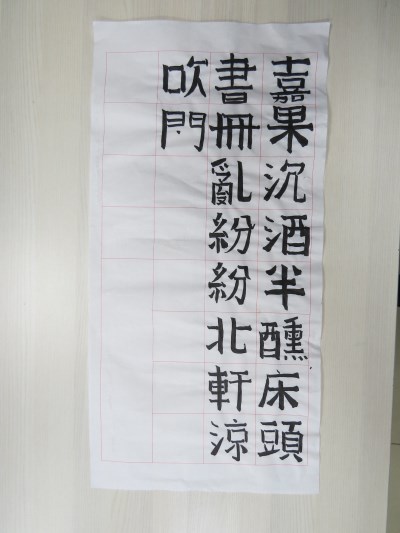 嘉果沉酒半醺床頭
書冊亂紛紛北軒涼
吹門